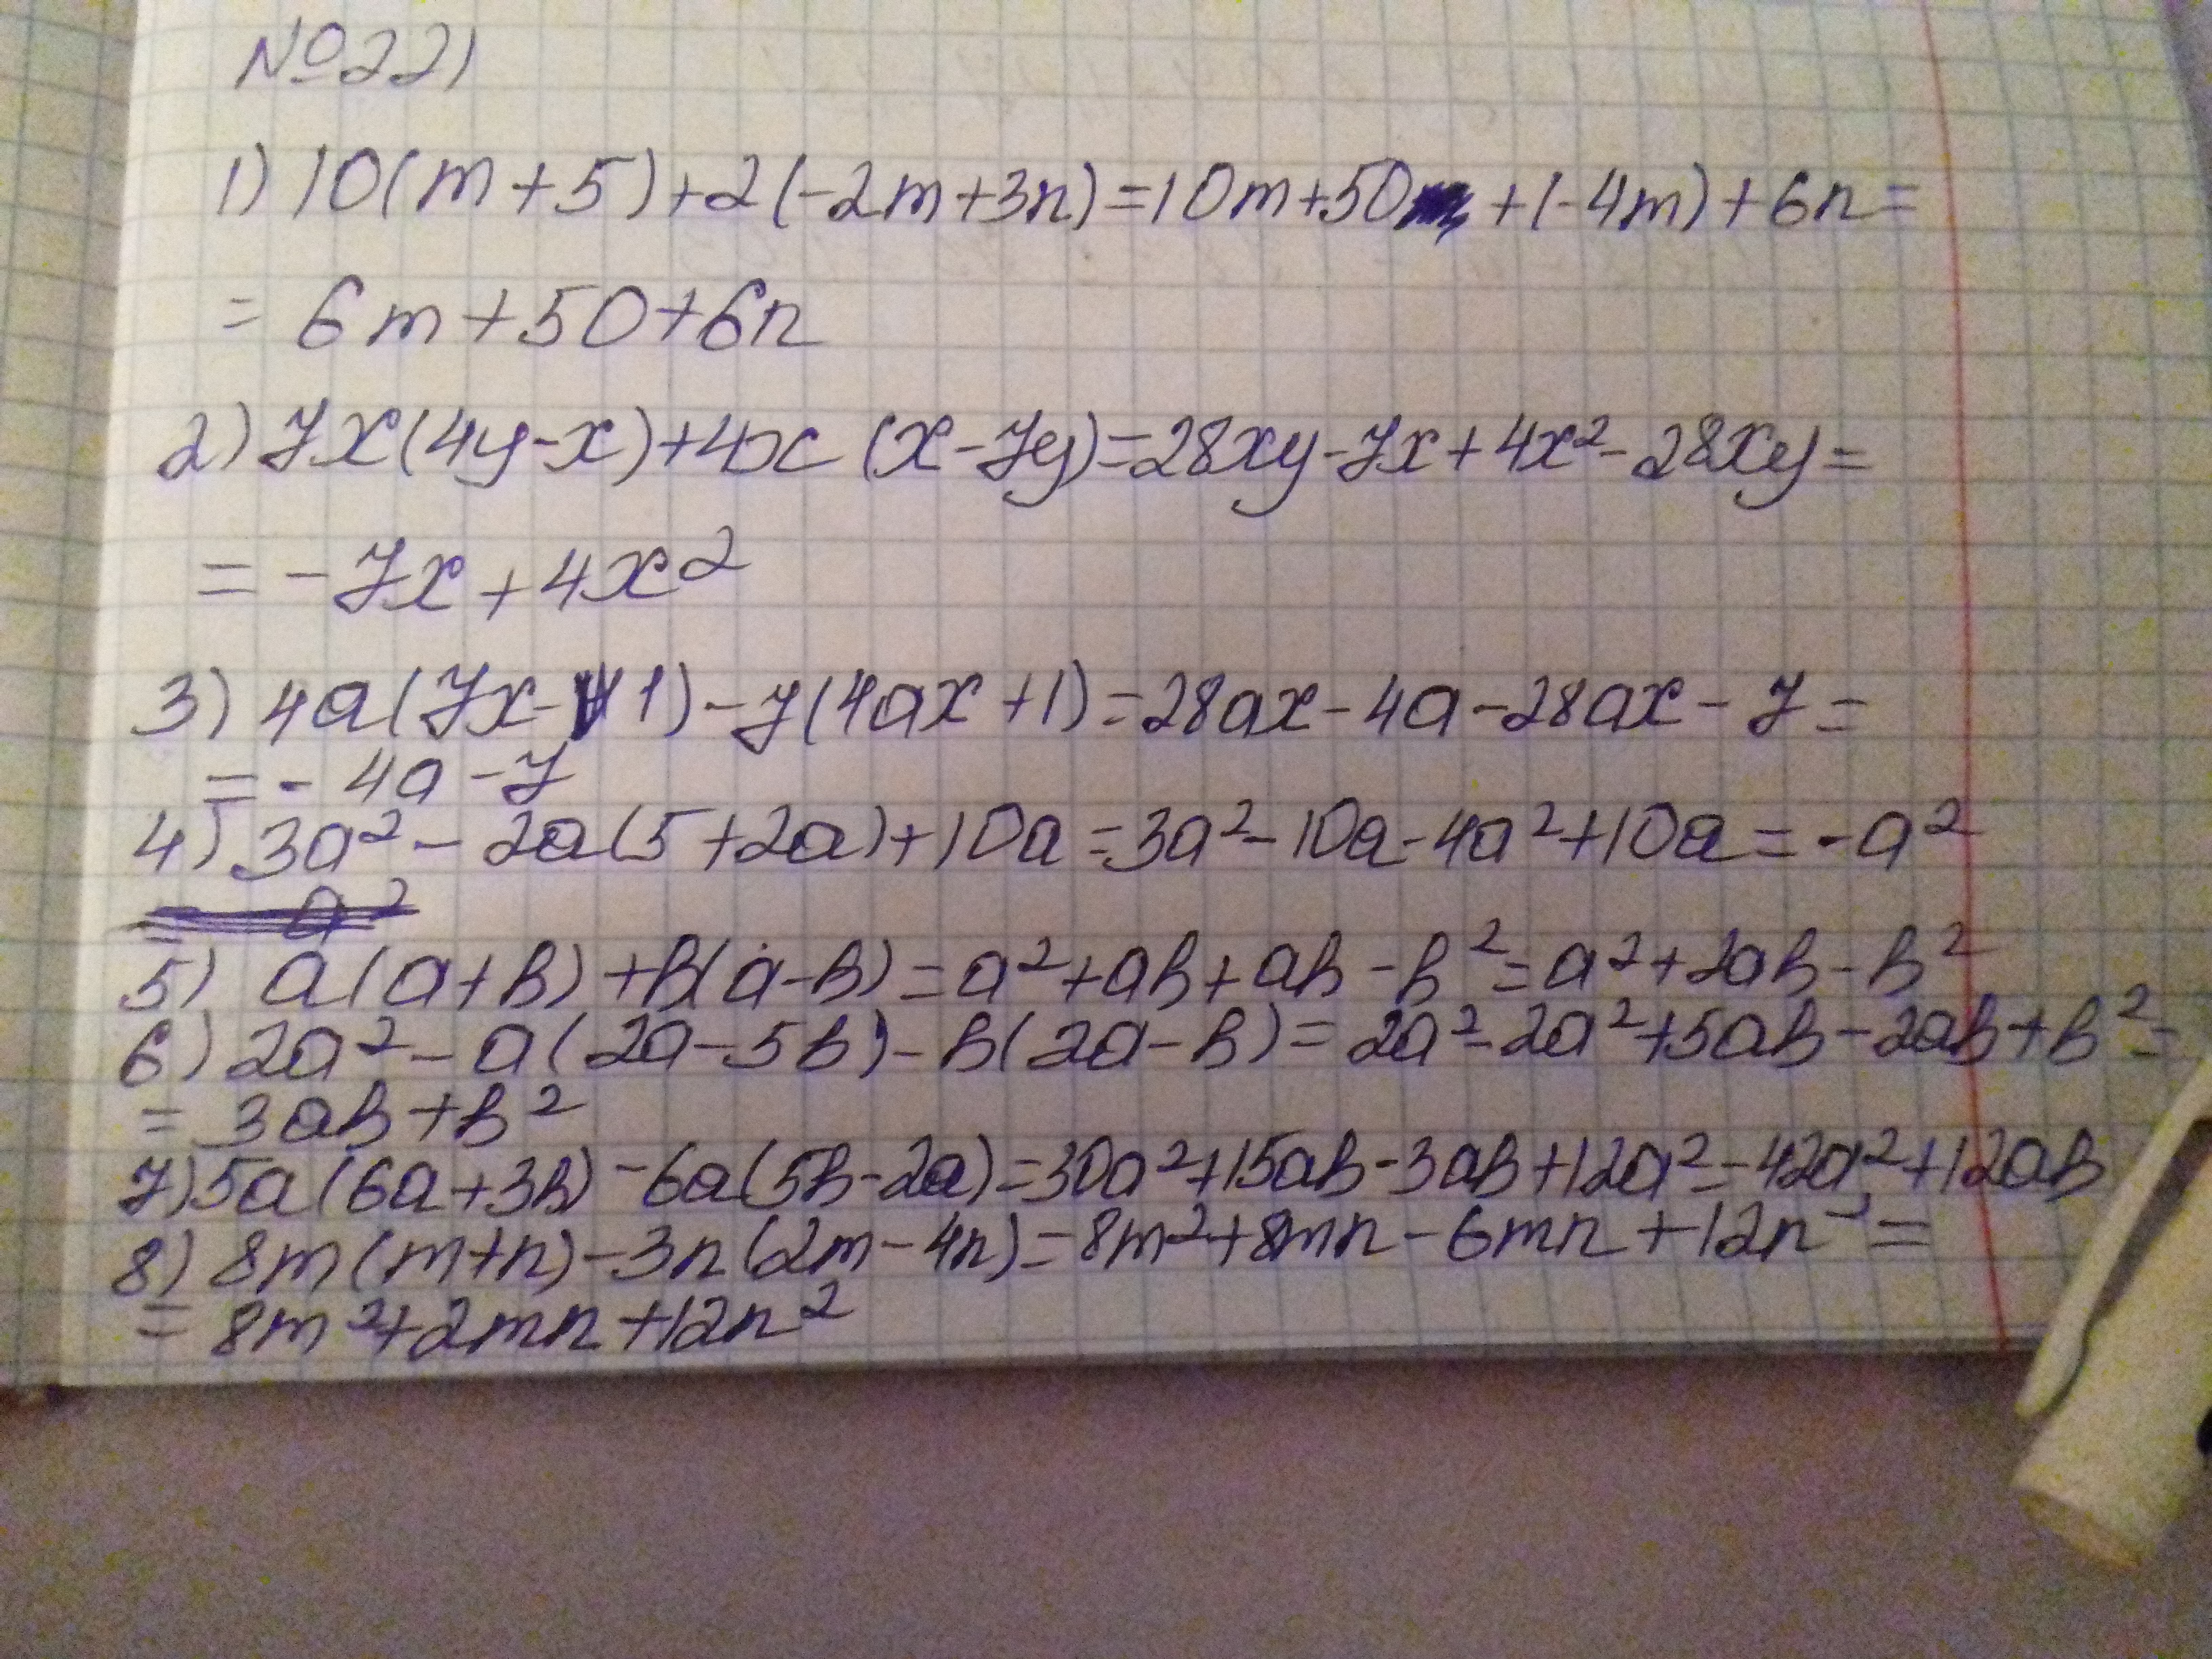 №221
1) 10(m+5)+2(-2m+3n)=10m+50 +(-4m)+6n=
= 6m+50+6n
2) 7x(4y-x)+4x(x-7y)=28xy-7x+4x²-28xy=
= -7x+4x²
3) 4a(7x-1)-7(4ax+1)=28ax-4a-28ax-7=
=-4a-7
4) 3a²-2a(5+2a)+10a=3a²-10a-4a²+10a=-a²
= a²
5) a(a+b)+b(a-b)=a²+ab+ab-b²=a²+2ab-b²
6) 2a²-a(2a-5b)-b(2a-b)=2a²-2a²+5ab-2ab+b²=
= 3ab+b²
7) 5a(6a+3b)-6a(5b-2a)=30a²+15ab-3ab+12a²=42a²+12ab
8) 8m(m+n)-3n(2m-4n)=8m²+8mn-6mn+12n²=
= 8m²+2mn+12n²